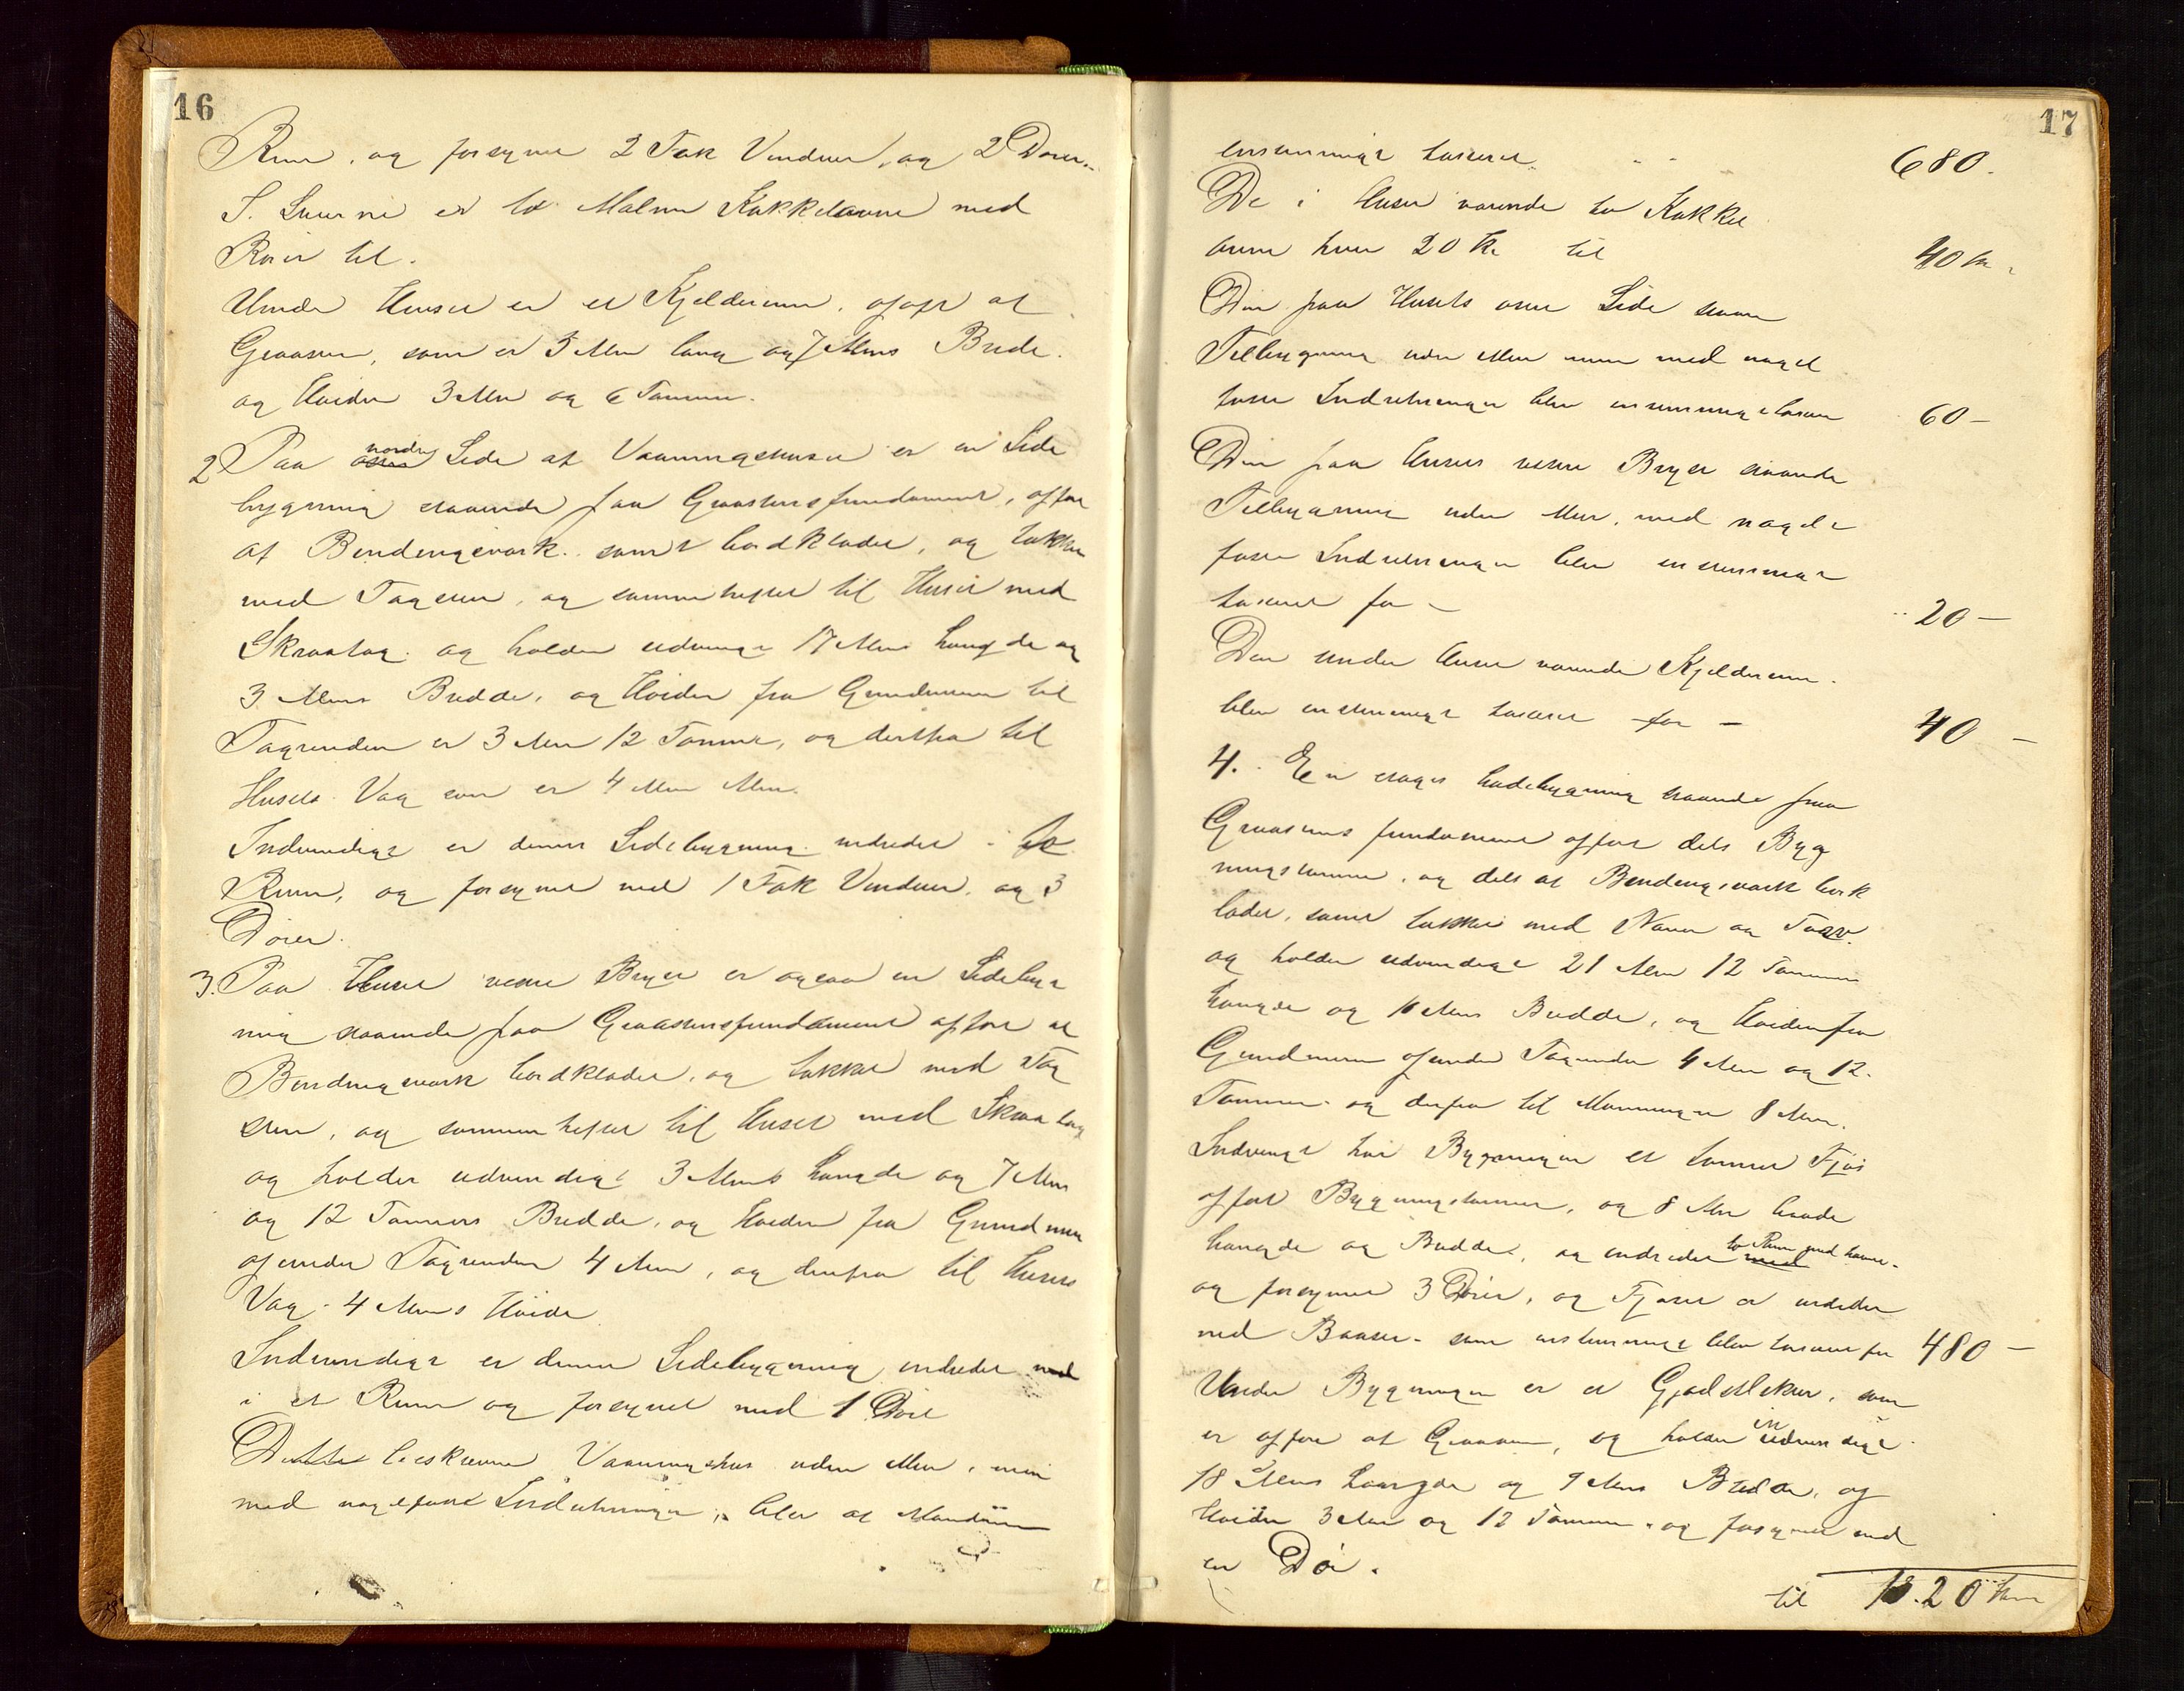 16
Rum, og forsynet 2 Fak Vinduer, og 2 Dører.
I Stuerne er to Malm Kakkelovne med
Rør til.
Under Huset er et Kjelderrum, opf af
Graasten, som er 5 Alen lang og 7 Alens Brede.
og Høiden 3 Alen og 6 Tommer.
2 Paa nordre Side af Vaaningshuset er en Side
bygning staaende paa Graastensfundament, opført
af Bindingsværk samt bordklædt, og tækket
med Tagsten, og sammenheftet til Huset med
Skraatag og holder udvendige 17 Alens Længde og
3 Alens Bredde, og Høiden fra Grundmuren til
Tagrenden er 3 Alen 12 Tommer, og derifra til
Husets Væg som er 4 Alen
Indvendige er denne Sidebygning indredet i to
Rum, og forsynet med 1 Fak Vinduer og 3
Dører.
3. Paa Huset vestre Bryst er ogsaa en Sidebyg
ning staaende paa Graastensfundament opført af
Bindingsværk bordklædt, og tækket med Tag
sten, og sammenheftet til Huset med Skraatag
og holder udvendige 3 Alens Længde og 7 Alen
og 12 Tommers Bredde, og Høiden fra Grundmuren
og under Tagrenden 4 Alen, og derifra til Husets
Væg 4 Alens Høide
Indvendige er denne Sidebygning indredet med
i et Rum og forsynet med 1 Dør
Dette beskrevne Vaaningshus uden Mur, men
med nagelfaste Indretninger, blev af Mændene
17
enstemmige taxeret 680.
De i Huset værende to Kakkel
ovne hver 20 Kr til 40 Kr.
Den paa Husets Side staaende
Tilbygning uden Mur men med nagel
faste Indretninger blev enstemmige taxeret 60 –
Den paa Husets vestre Bryst staaende
Tilbygning uden Mur, med nagel
faste Indretninger blev enstemmige
taxeret for – 20 –
Den under Huset værende Kjelderrum
blev enstemmige taxeret for – 40 –
4. En etages Ladebygning staaende paa
Graastens fundament opført dels Byg
ningstømmer, og dels af Bindingsværk bork
lædet, samt tækket med Næver og Torv
og holder udvendige 21 Alen 12 Tommer
Længde og 10 Alens Bredde, og Høiden fra
Grundmuren og under Tagrenden 4 Alen og 12
Tommer og derifra til Mønningen 8 Alen.
Indvendige har Bygningen et tømret Fjøs
opført Bygningstømmer, og 8 Alen baade
Længde og Bredde, og indredet to Rum med
og forsynet 3 Dører, og Fjøset er indredet
med Baaser som enstemmige blev taxeret for 480 –
Under Bygningen er et Gjødselskur, som
er opført af Graasten, og holder indvendige
18 Alens Længde og 9 Alens Bredde, og
Høiden 3 Alen og 12 Tommer og forsynet med
en Dør.
til 13.20 Kroner